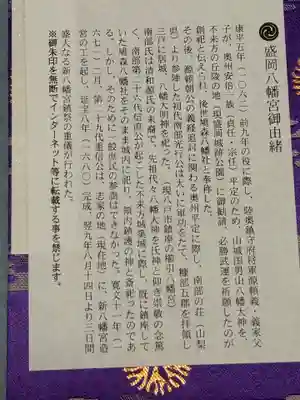 盛岡八幡宮御由緒
康平五年(一〇六二)前九年の役に際し、陸奥鎮守府将軍源頼義・義家父
子が、奥州安倍一族(貞任・宗任)平定のため、山城国男山八幡大神を、
不来方の丘陵の地(現盛岡城跡公園)に御勧請、必勝武運を祈願したのが
創祀と伝えられ、後世鳩森八幡社と奉称した。
その後、源頼朝公の義経追討に関わる奥州平定に際し、南部の荘(山梨
県)より参陣した初代南部光行公は大いに軍功をたて、糠部五郡を拝領し
三戸に居城、八幡大明神を祀った。(現八戸市鎮座の櫛引八幡宮)
南部氏は清和源氏の末裔で、先祖代々八幡大神を氏神と仰き崇敬の念篤
く、南部第二十六代信直公が起こした不来方城築城に際し、既に鎮座して
いた鳩森八幡社をそのまま城内に祀り、領内鎮護の神と斎祀ったのであ
る。しかし、そのため一般庶民の参拝はできなかった。寛文十一年(一
六七一)二月、第二十九代重信公は、志家の地(現在地)に、新八幡宮造
営の工を起し、延宝八年(一六八〇)完成、翌九年八月十四日より三日間
盛大なる新八幡宮鎮祭の儀が行われた。
※御朱印を無断でインターネット等に転載する事を禁じます。